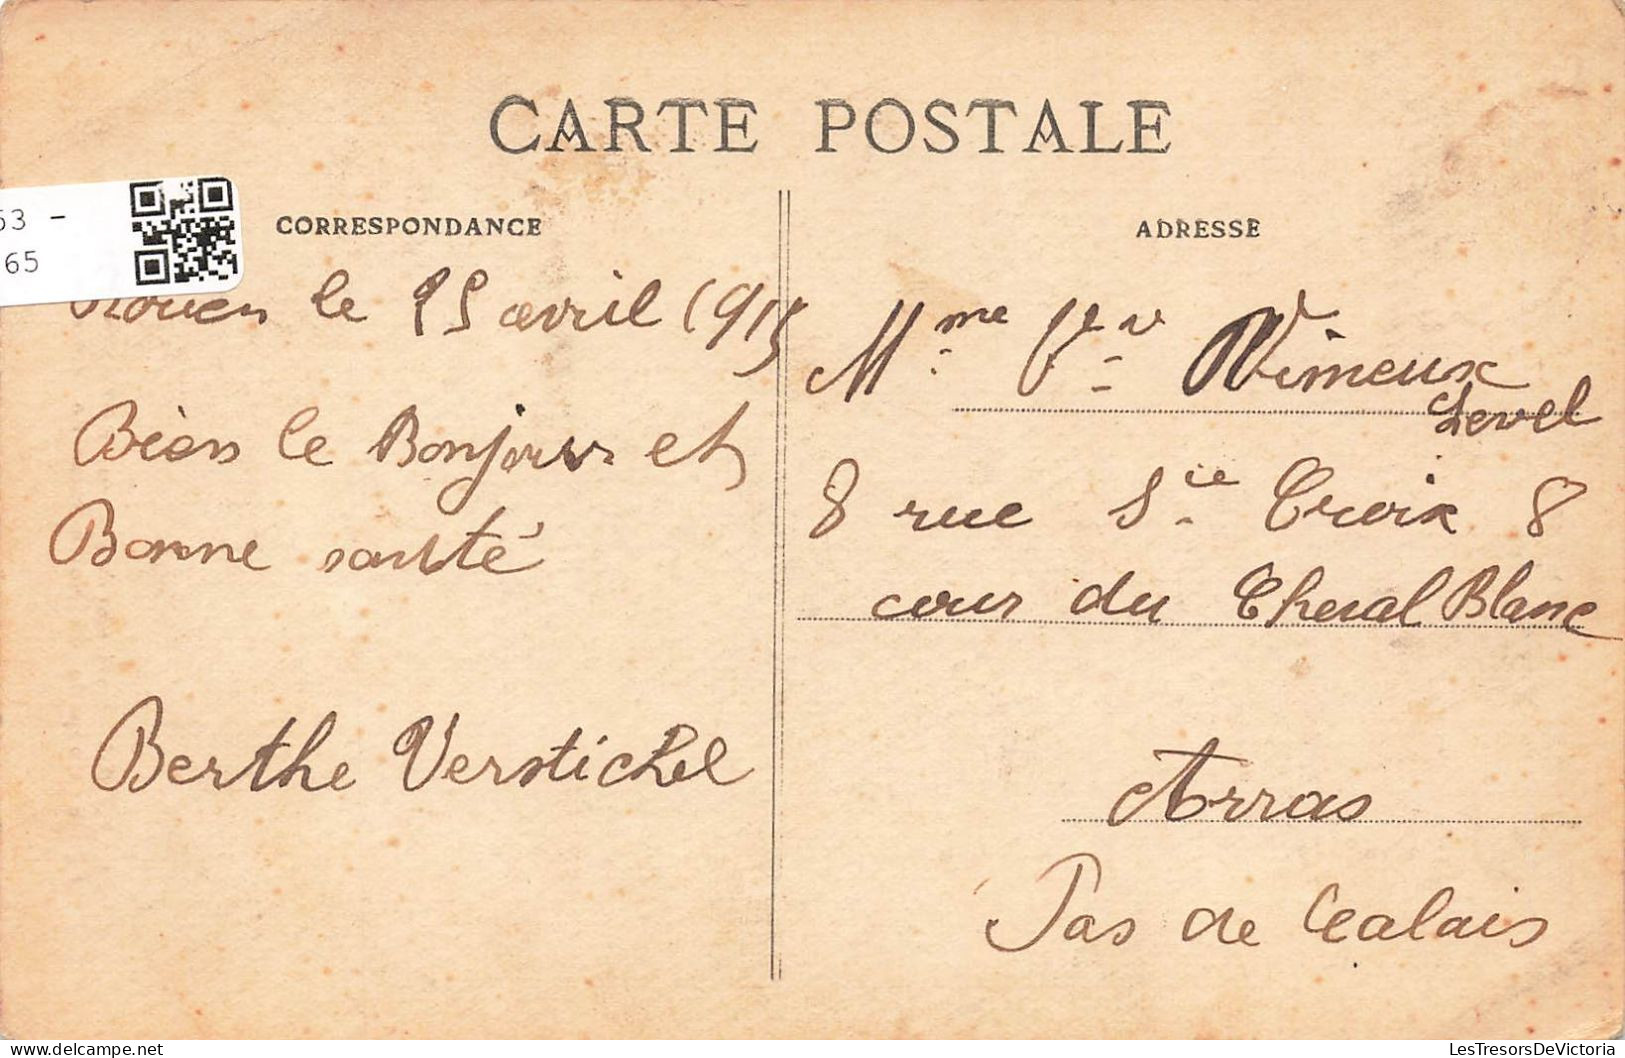 CARTE POSTALE
53 -
65
CORRESPONDANCE
Rouen le 25 avril 1915
Bien le Bonjour et
Bonne santé
Berthe Verstichel
ADRESSE
Mme Vve Vimeux
Level
8 rue Ste Croix 8
cour du Cheval Blanc
Arras
Pas de Calais
LesTresorsDeVictoria